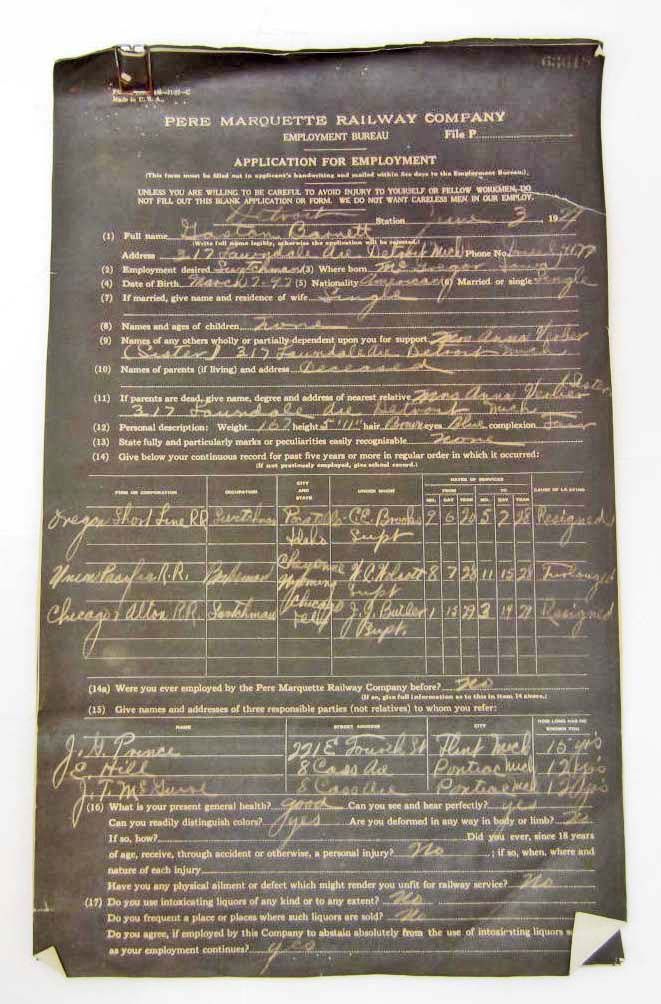 Made in U. S. A.
63618
PERE MARQUETTE RAILWAY COMPANY
EMPLOYMENT BUREAU File P
APPLICATION FOR EMPLOYMENT
(This form must be filled out in applicant's handwriting and mailed within five days to the Employment Bureau.)
UNLESS YOU ARE WILLING TO BE CAREFUL TO AVOID INJURY TO YOURSELF OR FELLOW WORKMEN, DO
NOT FILL OUT THIS BLANK APPLICATION OR FORM. WE DO NOT WANT CARELESS MEN IN OUR EMPLOY.
Detroit Station June 3 1929
(1) Full name Gaston Barnett
(Write full name legibly, otherwise the application will be rejected.)
Address 317 Lawndale Ave Detroit Mich Phone No.
(2) Employment desired Switchman (3) Where born McGregor Iowa
(4) Date of Birth March 7-97 (5) Nationality American (6) Married or single Single
(7) If married, give name and residence of wife Single
(8) Names and ages of children none
(9) Names of any others wholly or partially dependent upon you for support Mrs Anna
(Sister) 317 Lawndale Ave Detroit Mich
(10) Names of parents (if living) and address Deceased
(11) If parents are dead, give name, degree and address of nearest relative Mrs Anna Sister
317 Lawndale Ave Detroit Mich
(12) Personal description: Weight 167 height 5'11" hair Brown eyes Blue complexion Fair
(13) State fully and particularly marks or peculiarities easily recognizable none
(14) Give below your continuous record for past five years or more in regular order in which it occurred:
(If not previously employed, give school record.)
FIRM OR CORPORATION OCCUPATION CITY AND STATE UNDER WHOM DATES OF SERVICES FROM TO CAUSE OF LEAVING
MO. DAY YEAR MO. DAY YEAR
Oregon Short Line RR Switchman Pocatello C.E. Brooks 9 6 20 5 7 28 Resigned
Idaho Supt
Union Pacific R.R. Brakeman Cheyenne 8 7 28 11 15 28
Wyoming Supt
Chicago Alton R.R. Switchman Chicago J.J. Butler 1 15 29 3 19 29 Resigned
Ill Supt.
(14a) Were you ever employed by the Pere Marquette Railway Company before? No
(If so, give full information as to this in item 14 above.)
(15) Give names and addresses of three responsible parties (not relatives) to whom you refer:
NAME STREET ADDRESS CITY HOW LONG HAS HE KNOWN YOU
J. G. Prince 221 E Fourth St Flint Mich 15 yr's
E. Hill 8 Cass Ave Pontiac Mich 12 yr's
J. T. McGuire 8 Cass Ave Pontiac Mich 12 yr's
(16) What is your present general health? good Can you see and hear perfectly? yes
Can you readily distinguish colors? yes Are you deformed in any way in body or limb? No
If so, how? Did you ever, since 18 years
of age, receive, through accident or otherwise, a personal injury? No ; if so, when, where and
nature of each injury
Have you any physical ailment or defect which might render you unfit for railway service? No
(17) Do you use intoxicating liquors of any kind or to any extent? No
Do you frequent a place or places where such liquors are sold? No
Do you agree, if employed by this Company to abstain absolutely from the use of intoxicating liquors
as your employment continues? yes